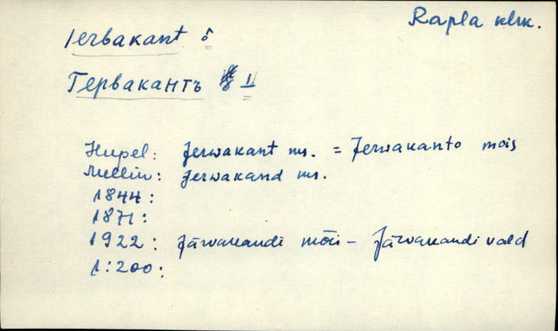 Rapla khk.
Іервакант :
Гервакантъ I
Hupel: Jerwakant m. = Jerwakanto mois
Mellin: Jerwakand m.
1844:
1871:
1922: Järvakandi mõis – Järvakandi vald
1:200: